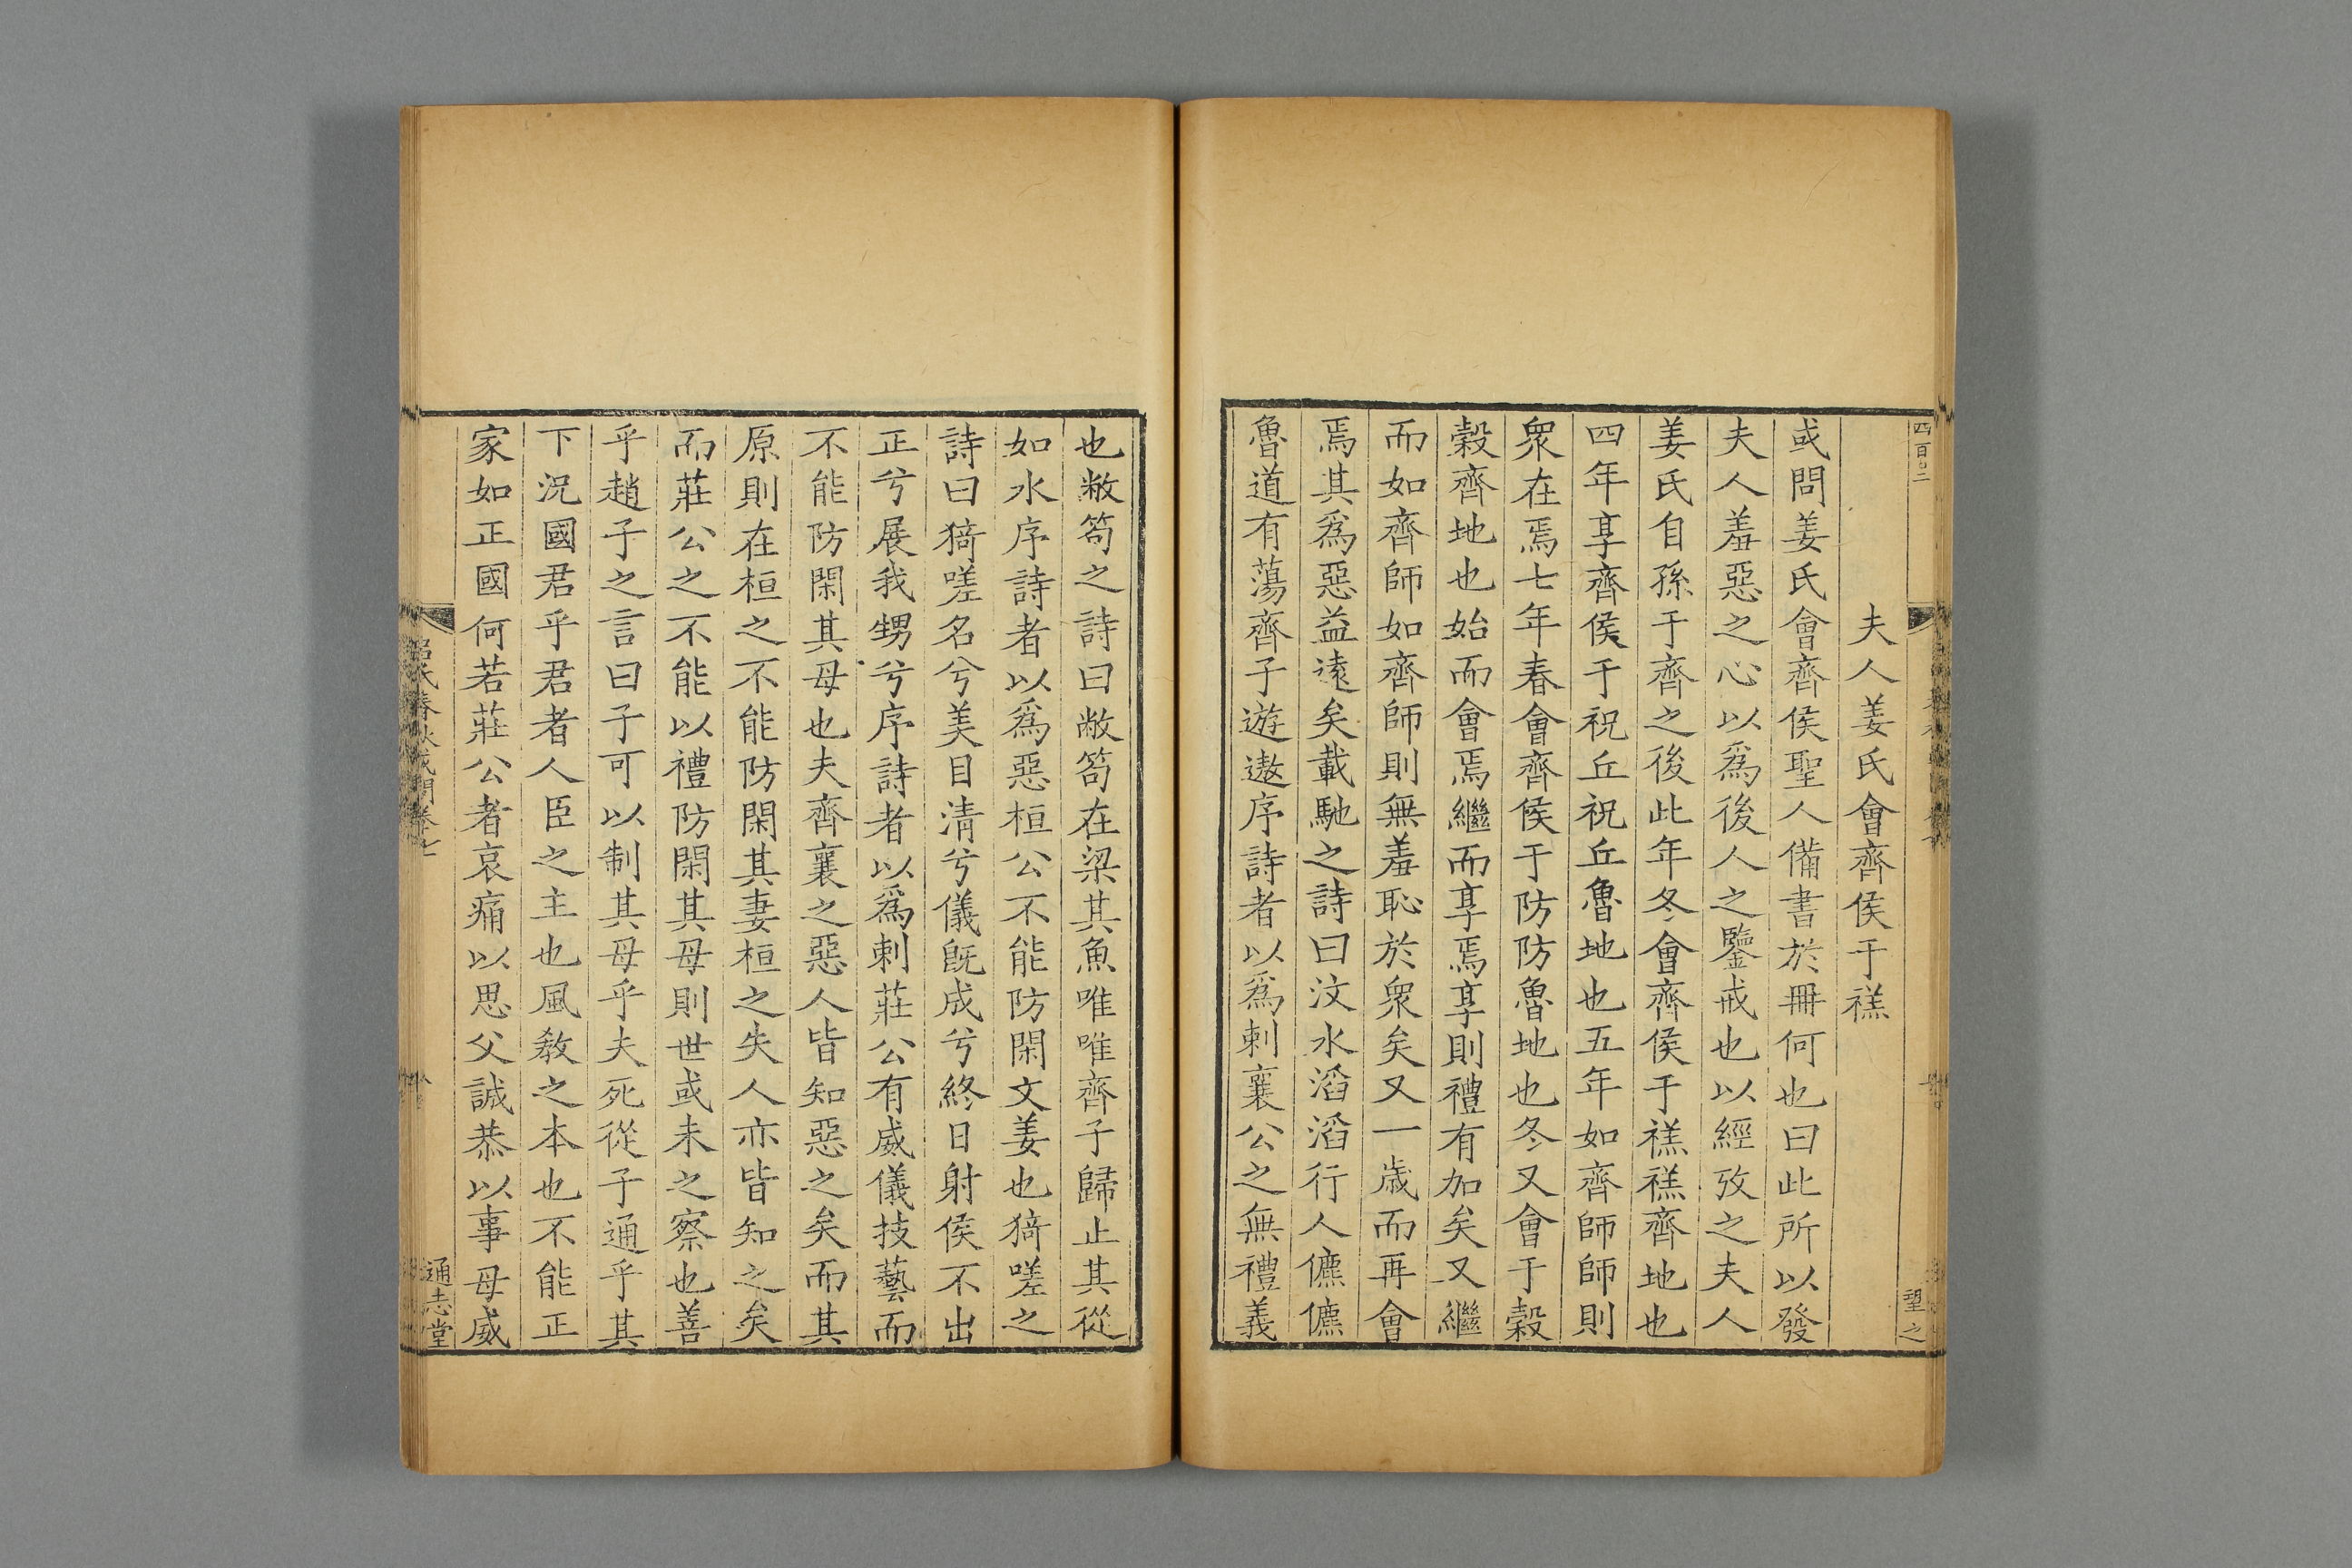 夫人姜氏會齊侯于禚
或問姜氏會齊侯聖人備書於冊何也曰此所以發
夫人羞惡之心以爲後人之鑒戒也以經攷之夫人
姜氏自孫于齊之後此年冬會齊侯于禚禚齊地也
四年享齊侯于祝丘祝丘魯地也五年如齊師師則
眾在焉七年春會齊侯于防防魯地也冬又會于穀
穀齊地也始而會焉繼而享焉享則禮有加矣又繼
而如齊師如齊師則無羞恥於眾矣又一歲而再會
焉其爲惡益遠矣載馳之詩曰汶水滔滔行人儦儦
魯道有蕩齊子遊遨序詩者以爲刺襄公之無禮義
也敝笱之詩曰敝笱在梁其魚唯唯齊子歸止其從
如水序詩者以爲惡桓公不能防閑文姜也猗嗟之
詩曰猗嗟名兮美目清兮儀既成兮終日射侯不出
正兮展我甥兮序詩者以爲刺莊公有威儀技藝而
不能防閑其母也夫齊襄之惡人皆知惡之矣而其
原則在桓之不能防閑其妻桓之失人亦皆知之矣
而莊公之不能以禮防閑其母則世或未之察也善
乎趙子之言曰子可以制其母乎夫死從子通乎其
下況國君乎君者人臣之主也風教之本也不能正
家如正國何若莊公者哀痛以思父誠恭以事母威
呂氏春秋或問卷七
通志堂
望之